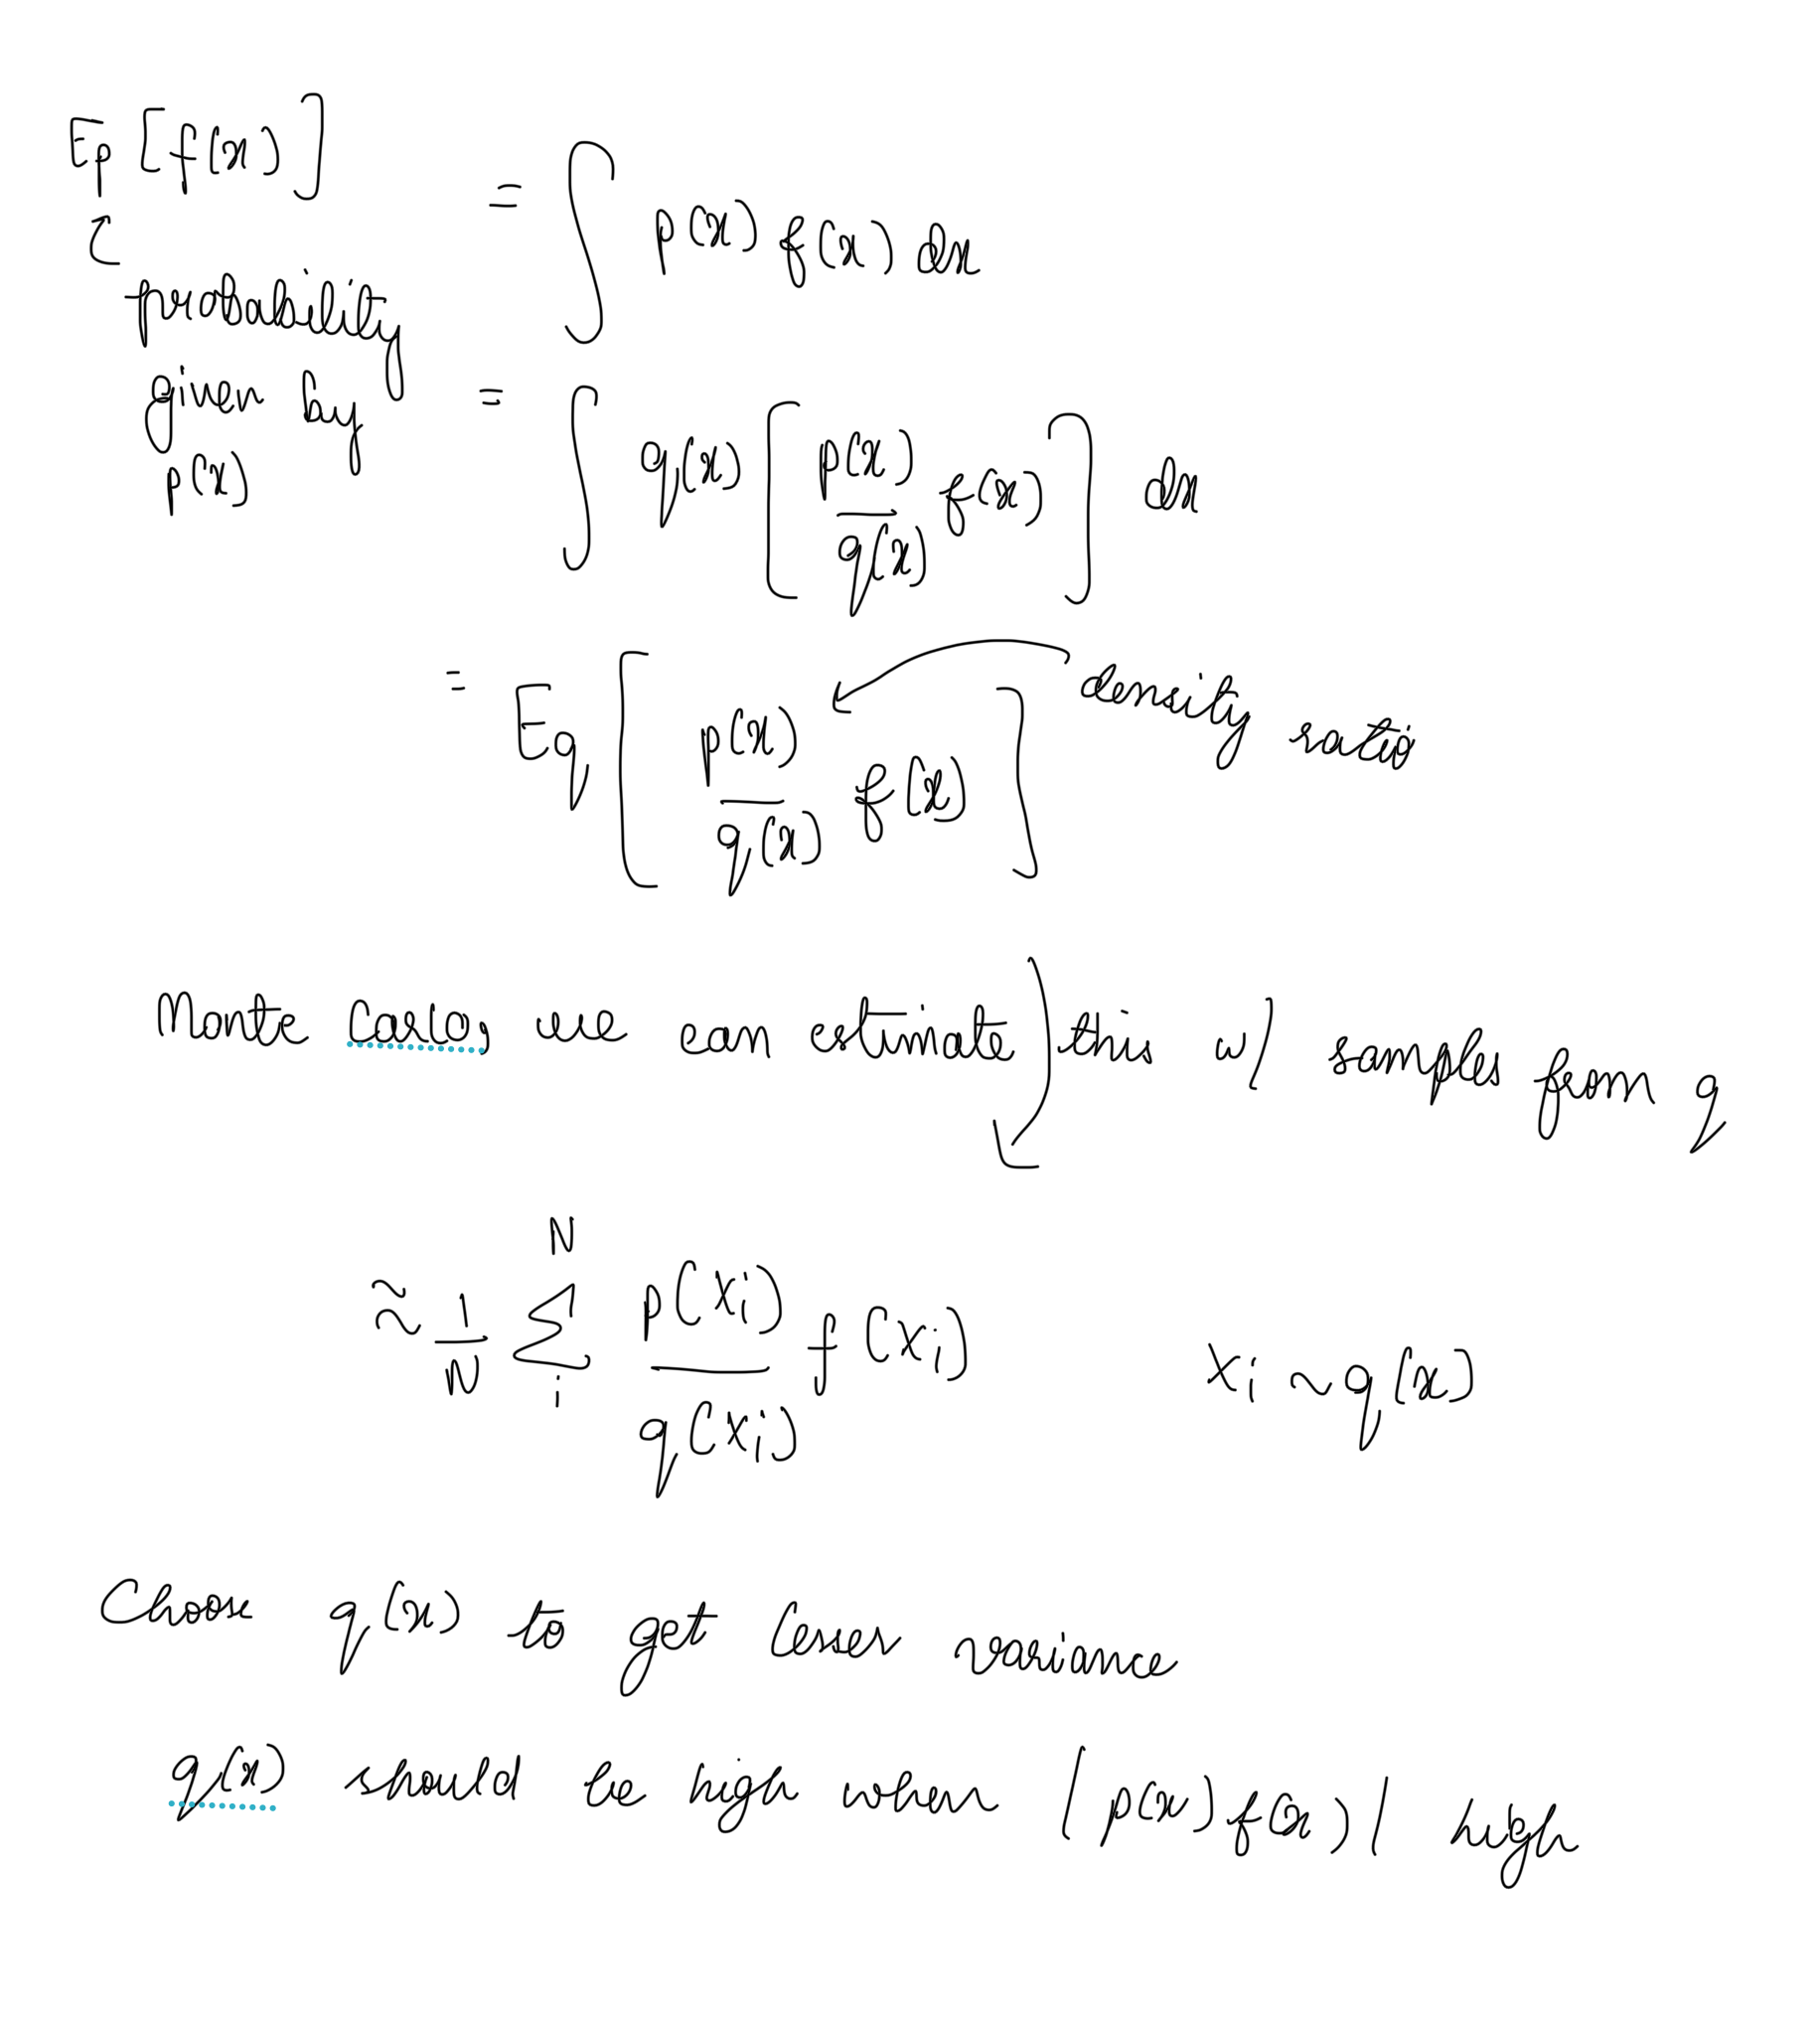 E_p [f(x)] = ∫ p(x) f(x) dx
probability
given by
p(x)
= ∫ q(x) [ p(x)/q(x) f(x) ] dx
= E_q [ p(x)/q(x) f(x) ] density ratio
Monte Carlo, we can estimate this w/ samples from q
≈ 1/N Σ_i^N p(x_i)/q(x_i) f(x_i) x_i ~ q(x)
Choose q(x) to get lesser variance
q(x) should be high when |p(x) f(x)| high